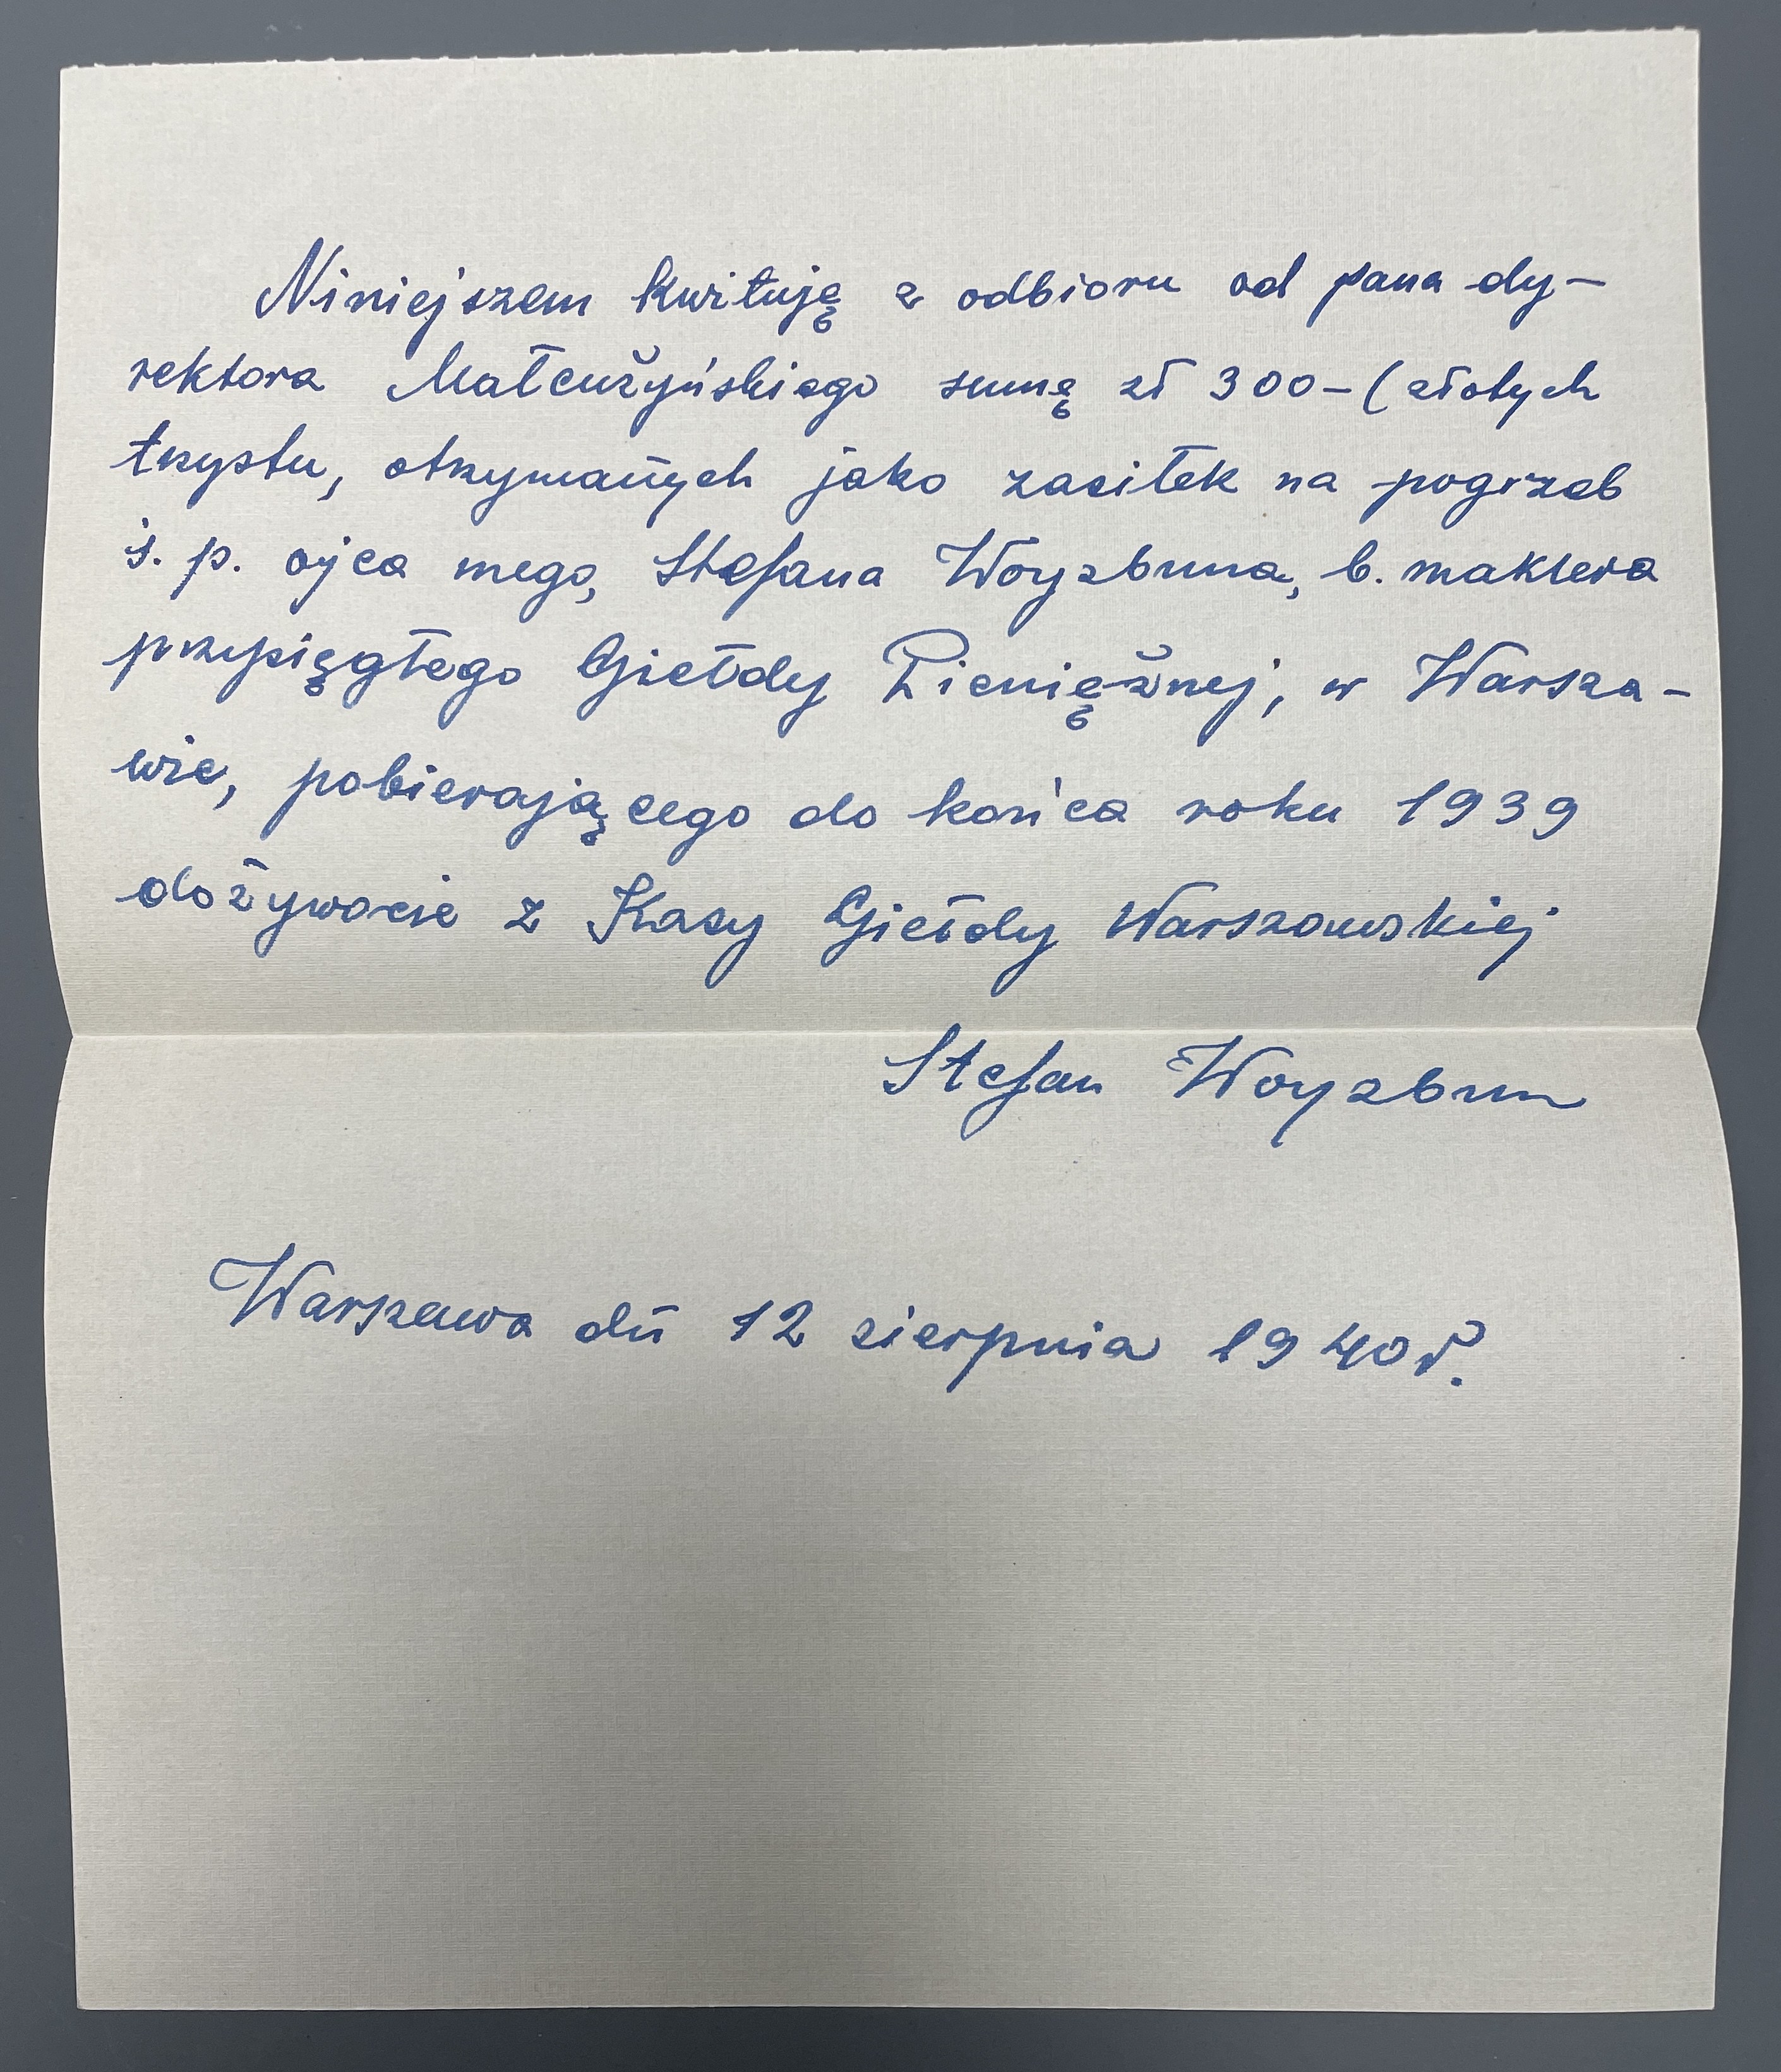 Niniejszem kwituję z odbioru od pana dy-
rektora Małcużyńskiego sumę zł 300-(złotych
trzystu, otrzymanych jako zasiłek na pogrzeb
ś. p. ojca mego, Stefana Woyzbuna, b. maklera
przysięgłego Giełdy Pieniężnej, w Warsza-
wie, pobierającego do końca roku 1939
dożywocie z Kasy Giełdy Warszawskiej
Stefan Woyzbun
Warszawa dń 12 sierpnia 1940 r.